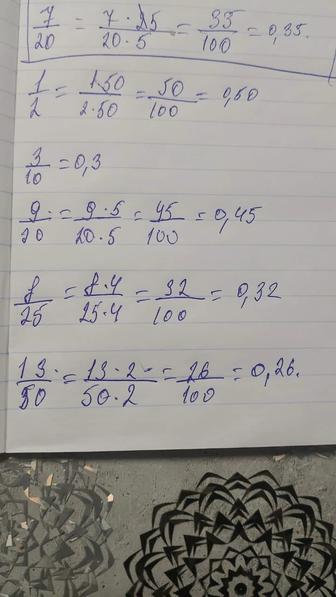 7/20 = 7·25/20·5 = 35/100 = 0,35.
1/2 = 1·50/2·50 = 50/100 = 0,50
3/10 = 0,3
9/20 = 9·5/20·5 = 45/100 = 0,45
8/25 = 8·4/25·4 = 32/100 = 0,32
13/50 = 13·2/50·2 = 26/100 = 0,26.